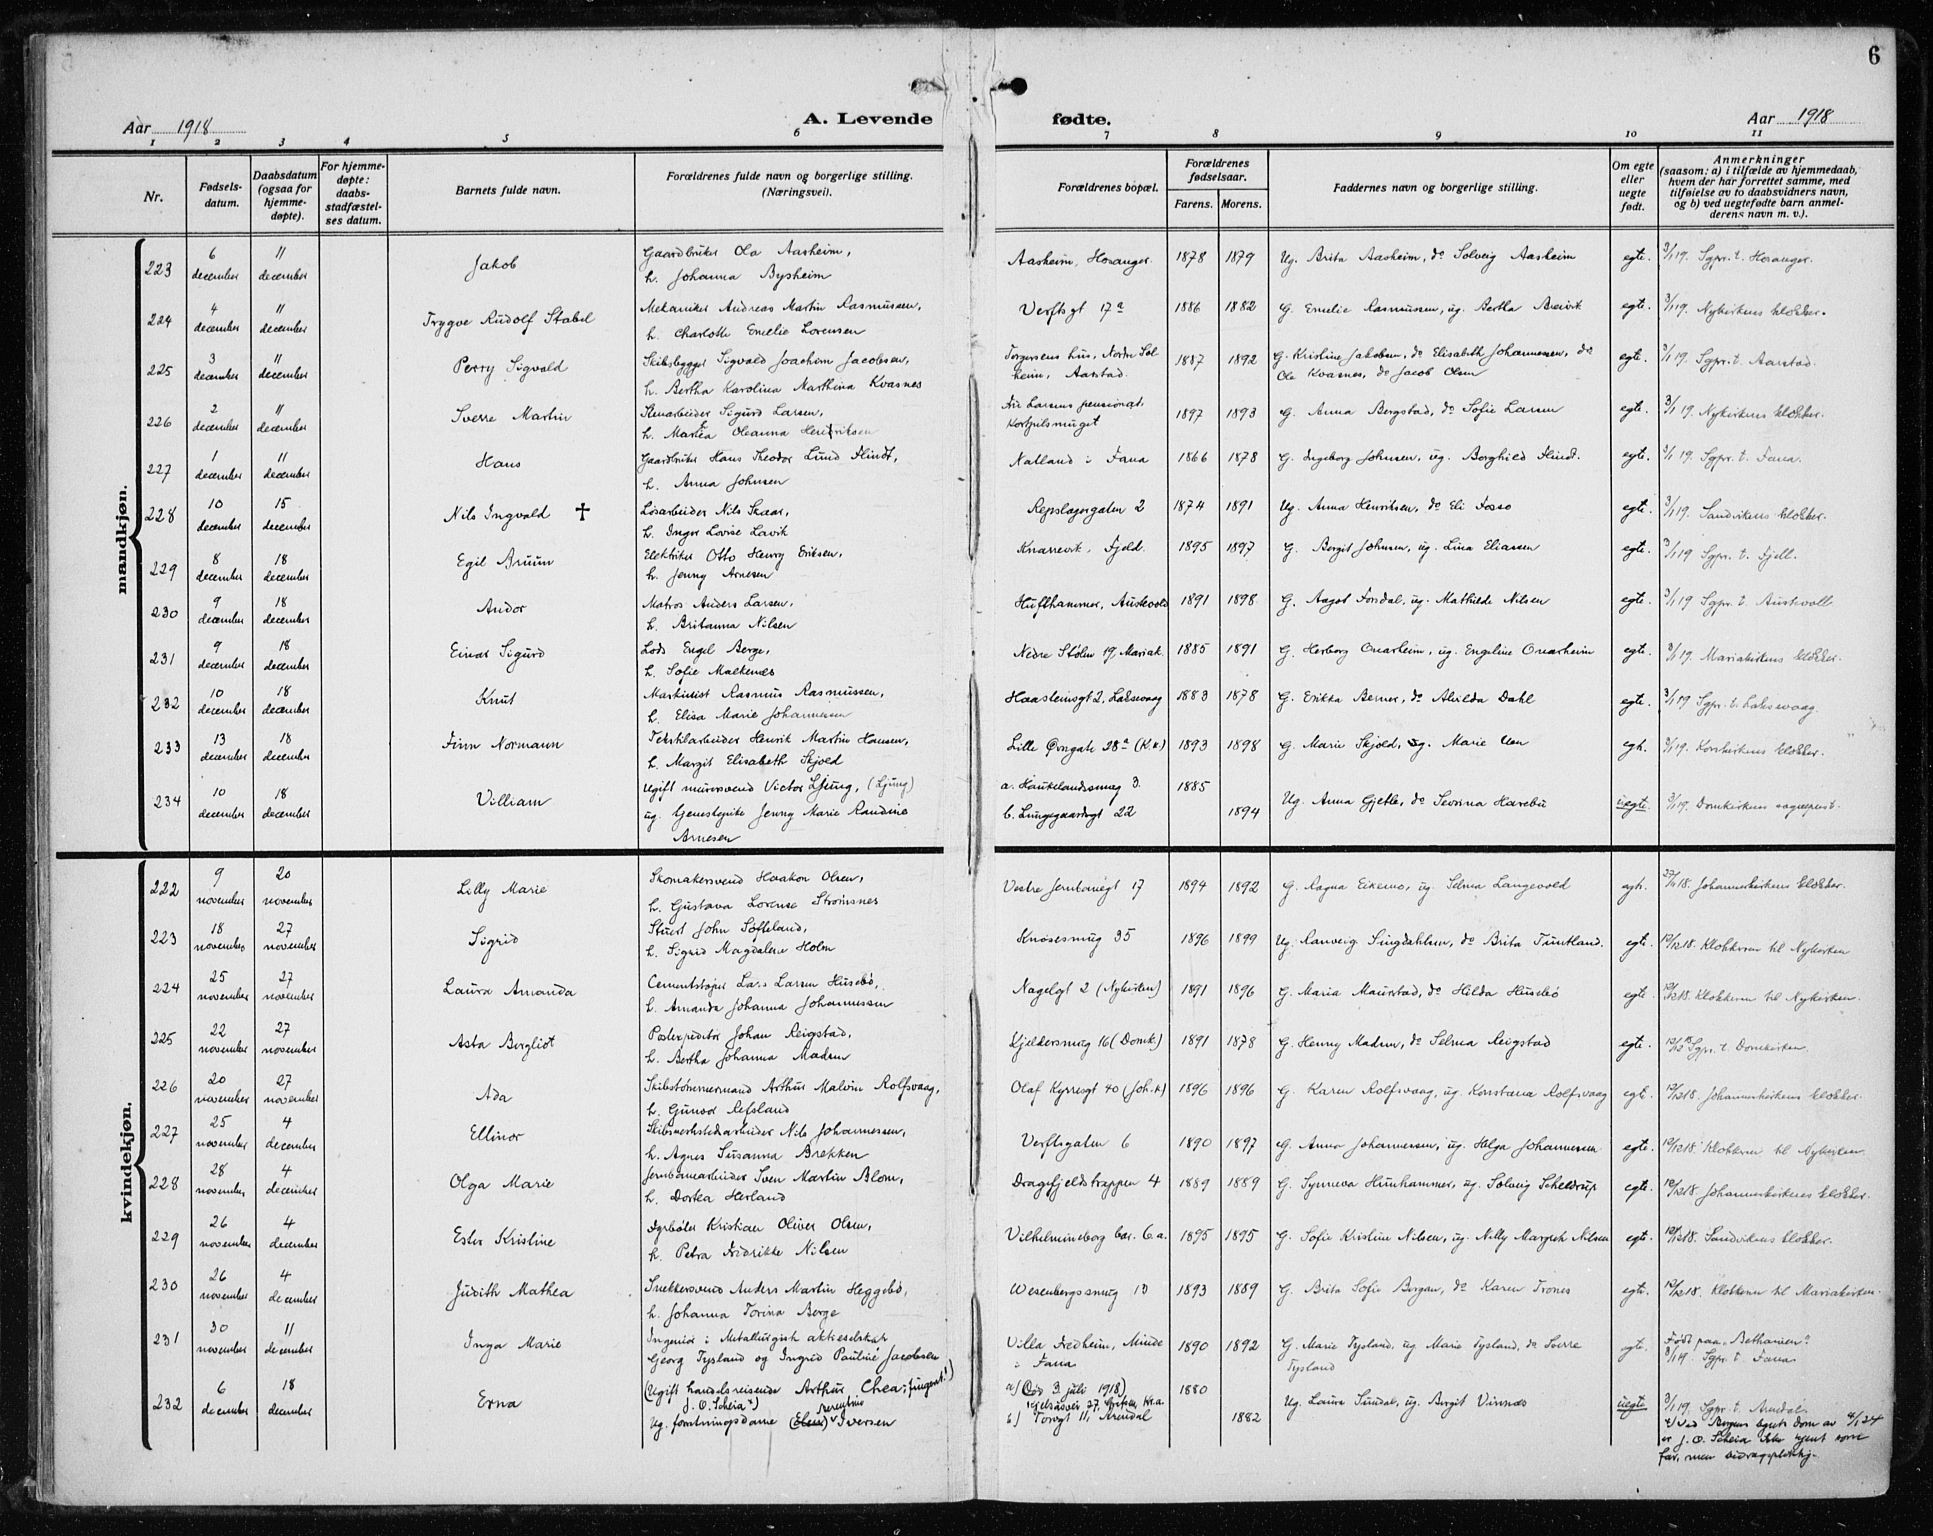 6
Aar 1918
A. Levende
fødte.
Aar 1918
1 2 3 4 5 6 7 8 9 10 11
Nr.
Fødsels-
datum.
Daabsdatum
(ogsaa for
hjemme-
døpte).
For hjemme-
døpte:
daabs-
stadfæstel-
ses datum.
Barnets fulde navn.
Forældrenes fulde navn og borgerlige stilling.
(Næringsvei).
Forældrenes bopæl.
Forældrenes
fødselsaar.
Farens. Morens.
Faddernes navn og borgerlige stilling.
Om egte
eller
uegte
født.
Anmerkninger
(saasom: a) i tilfælde av hjemmedaab,
hvem der har forrettet samme, med
tilføielse av to daabsvidners navn,
og b) ved uegtefødte barn anmel-
derens navn m. v.).
mandkjøn.
223 6 december 11 december Jakob Gaardbruker Ola Aasheim, Aasheim, Hosanger. 1878 1879 Ug. Brita Aasheim, do Solveig Aasheim egte. 3/1 19. Sgpr. t. Hosanger.
h. Johanna Bysheim
224 4 december 11 december Trygve Rudolf Stabel Mekaniker Andreas Martin Rasmussen, Verftsgt 17a 1886 1882 G. Emelie Rasmussen, ug. Bertha Breivik egte. 3/1 19. Nykirkens klokker.
h. Charlotte Emelie Lorensen
225 3 december 11 december Perry Sigvald Skibsbygger Sigvald Joachim Jacobsen, Torgersens hus, Nordre Sol- 1887 1892 G. Kristine Jakobsen, do Elisabeth Johannessen, do egte. 3/1 19. Sgpr. t. Aarstad.
h. Bertha Karolina Marthina Kvasnes heim, Aarstad. Ole Kvasnes, do Jacob Olsen
226 2 december 11 december Sverre Martin Stenarbeider Sigurd Larsen, Larsens pensionat, 1897 1893 G. Anna Bergstad, do Sofie Larsen egte. 3/1 19. Nykirkens klokker.
h. Oleanna Hendriksen
227 1 december 11 december Hans Gaardbruker Hans Theodor Lund Flindt, Natland i Fana 1866 1878 G. Ingeborg Johnsen, ug. Borghild Flindt. egte. 3/1 19. Sgpr. t. Fana.
h. Anna Johnsen
228 10 december 15 december Nils Ingvald ✝ Løsarbeider Nils Skaar, Repslagergaten 2 1874 1891 Ug. Anna Henriksen, do Eli Fosso egte. 3/1 19. Sandvikens klokker.
h. Inger Lovise Lavik
229 8 december 18 december Egil Bruun Elektriker Otto Henry Eriksen, Knarrevik, Fjeld. 1895 1897 G. Bergit Johnsen, ug. Lina Eliassen egte. 3/1 19 Sgpr. t. Fjell.
h. Jenny Arnesen
230 9 december 18 december Andor Matros Anders Larsen, Hufthammer, Austevold 1891 1898 G. Aagot Forsdal, ug. Mathilde Nilsen egte. 3/1 19 Sgpr. t Austevoll
h. Britanna Nilsen
231 9 december 18 december Einar Sigurd Lods Engel Berge, Nedre Stølen 19, Mariak. 1885 1891 G. Herborg Onarheim, ug. Engeline Onarheim egte. 3/1 19. Mariakirkens klokker.
h. Sofie Malkenes
232 10 december 18 december Knut Maskinist Rasmus Rasmussen, Haasteinsgt 2, Laksevaag 1883 1878 G. Erikka Berner, do Alvilda Dahl egte. 3/1 19 Sgpr. t. Laksevaag.
h. Elisa Marie Johannesen
233 13 december 18 december Finn Normann Tekstilarbeider Henrik Martin Hansen, Lille Øvregate 28a (K.k.) 1893 1898 G. Marie Skjold, ug. Marie Uen egte. 3/1 19. Korskirkens klokker.
h. Margit Elisabeth Skjold
234 10 december 18 december Villiam Ugift murersvend Victor Ljung, (Ljung) a. Haukelandssmug 3. 1885 Ug. Anna Gjetle, do Sevrina Harebu uegte. 3/1 19. Domkirkens sogneprest.
ug. Tjenestepike Jenny Marie Randine b. Lungegaardsgt 22 1894
Arnesen
kvindekjøn.
222 9 november 20 november Lilly Marie Skomakersvend Haakon Olsen, Vestre Jernbanegt 17 1894 1892 G. Ragna Eikemo, ug. Selma Langevold egte. Johanneskirkens klokker.
h. Gustava Lorense Strømsnes
223 18 november 27 november Sigrid Stuert John Søfteland, Knøsesmug 35 1896 1899 Ug. Ranveig Singdahlsen, do Brita Tuntland. egte. 12/12 18. Klokkeren til Nykirken
h. Sigrid Magdalene Holm
224 25 november 27 november Laura Amanda Cementstøper Lars Larsen Husebø, Nagelgt 2 (Nykirken) 1891 1896 G. Maria Maurstad, do Hilda Husebø egte. 12/12 18. Klokkeren til Nykirken.
h. Amanda Johanna Johannessen
225 22 november 27 november Asta Bergliot Postexpeditør Johan Reigstad, Kjeldersmug 16 (Domk.) 1891 1878 G. Henny Madsen, do Selma Reigstad egte. 12/12 18 Sgpr. t. Domkirken.
h. Bertha Johanna Madsen
226 20 november 27 november Ada Skibstømmermand Arthur Malvin Rolfsvaag, Olaf Kyrresgt 40 (Joh.k) 1896 1896 G. Karen Rolfsvaag, ug. Konstanse Rolfsvaag egte. 12/12 18. Johanneskirkens klokker.
h. Gunvor Refsland
227 25 november 4 december Ellinor Skibsverkstedarbeider Nils Johannessen, Verftsgaten 6 1890 1897 G. Anna Johannessen, ug. Helga Johannessen egte. 12/12 18. Klokkeren til Nykirken.
h. Agnes Susanna Brekken
228 28 november 4 december Olga Marie Jernbanearbeider Sven Martin Blom, Dragefjeldstrappen 4 1889 1889 G. Synneva Hunhammer, ug. Solveig Scheldrup egte. 12/12 18 Johanneskirkens klokker.
h. Dortea Herland
229 26 november 4 december Ester Kristine Fyrbøter Kristian Oliver Olsen, Vilhelmineborg bar. 6.a. 1895 1895 G. Sofie Kristine Nilsen, ug. Nilly Margreth Nilsen egte. 12/12 18. Sandvikens klokker.
h. Petra Fredrikke Nilsen
230 26 november 4 december Judith Mathea Snekkersvend Anders Martin Heggebø, Wesenbergssmug 10 1893 1889 G. Brita Sofie Bergan, do Karen Trones egte. 12/12 18. Klokkeren til Mariakirken.
h. Johanna Torina Berge
231 30 november 11 december Inga Marie Ingeniør i Metallurgisk aktieselskap Villa Fredheim, Minde 1890 1892 G. Marie Tysland, ug Marie Tysland, do Sverre egte. Født paa "Bethanien".
Georg Tysland og Ingrid Pauline Jacobsen i Fana Tysland 3/1 19. Sgpr. t. Fana.
232 6 december 18 december Erna (Ugift handelsreisende Arthur Chea, fingeret!) a) (død 3 juli 1918) 1880 Ug. Laura Sundal, ug. Birgit Vinnes uegte 3/1 19. Sgpr. t. Arendal.
J. O. Scheia x)
Ug. forretningsdame (Elens) Berentine Iversen b) Torvgt 11, Arendal 1882 x) Ved Bergens byrets dom av 4/1 24
er J. O. Scheia ikke kjent som
far, men bidragspliktig.